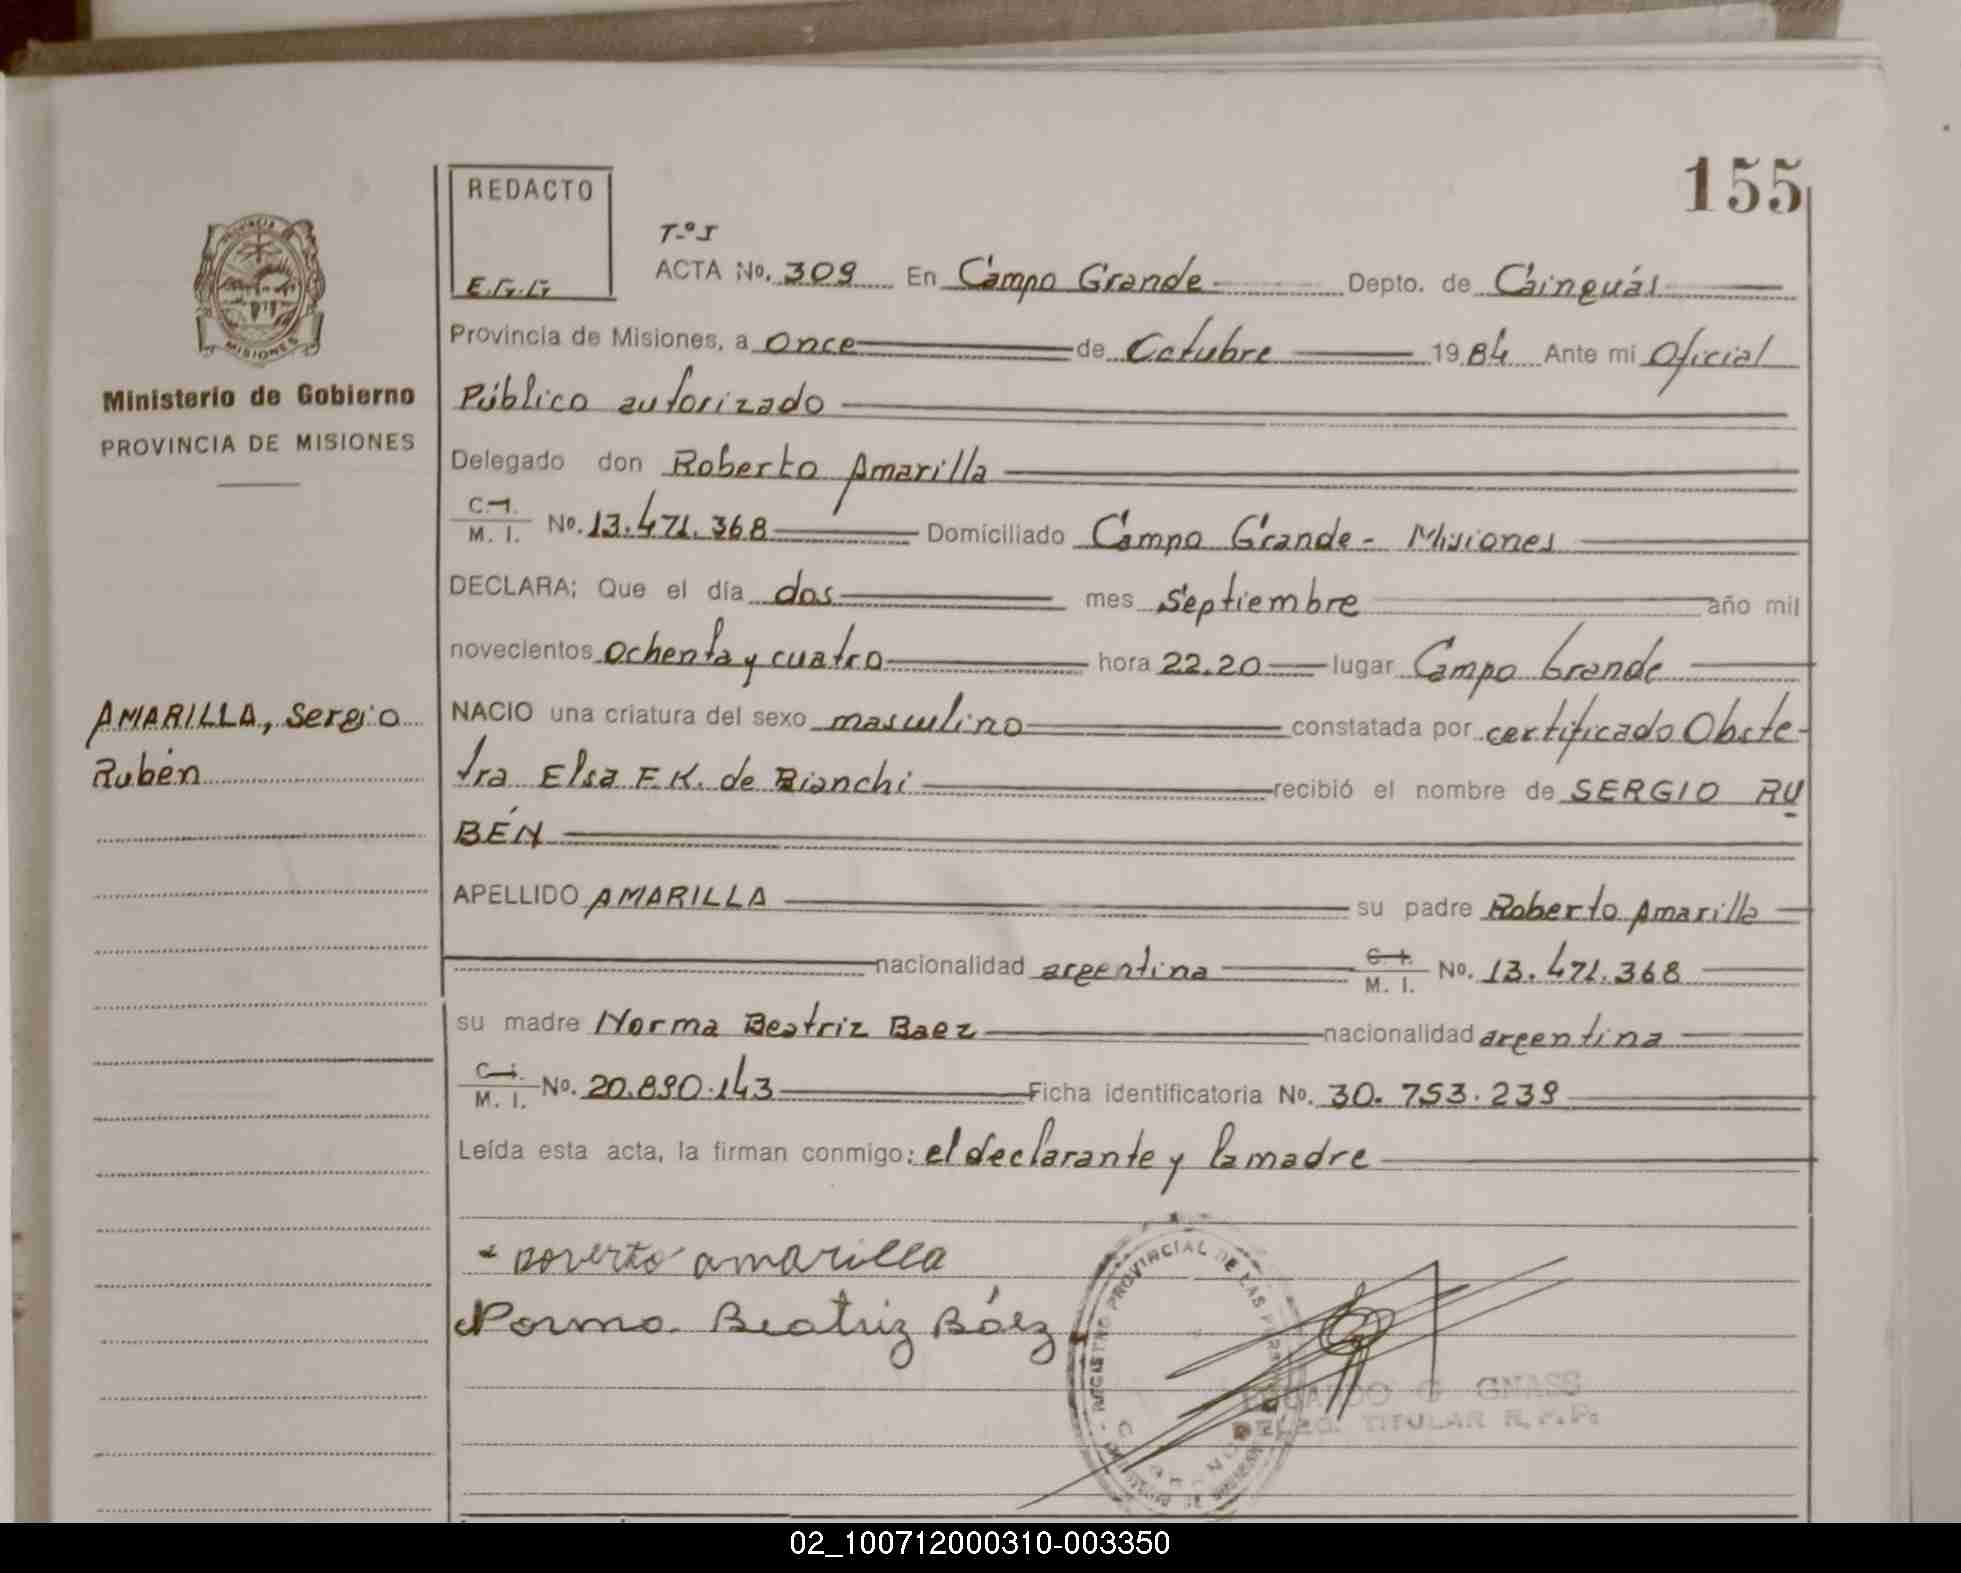 155
REDACTO
E.G.G
T-º I
ACTA No. 309 En Campo Grande Depto. de Cainguás
Provincia de Misiones, a once de Octubre 19 84 Ante mi Oficial
Público autorizado
Delegado don Roberto Amarilla
C.I.
M. I. No. 13.471.368 Domiciliado Campo Grande - Misiones
DECLARA; Que el día dos mes Septiembre año mil
novecientos ochenta y cuatro hora 22.20 lugar Campo Grande
NACIO una criatura del sexo masculino constatada por certificado Obste-
tra Elsa F.K. de Bianchi recibió el nombre de SERGIO RU
BÉN
APELLIDO AMARILLA su padre Roberto Amarilla
nacionalidad argentina C.I.
M. I. No. 13.471.368
su madre Norma Beatriz Baez nacionalidad argentina
C.I.
M. I. No. 20.890.143 Ficha identificatoria No. 30.753.239
Leída esta acta, la firman conmigo: el declarante y la madre
roverto amarilla
Norma Beatriz Báez
REGISTRO PROVINCIAL DE LAS PERSONAS
G. GNASS
DELEG. TITULAR R.P.P.
PROVINCIA
MISIONES
Ministerio de Gobierno
PROVINCIA DE MISIONES
AMARILLA, Sergio
Rubén
02_100712000310-003350